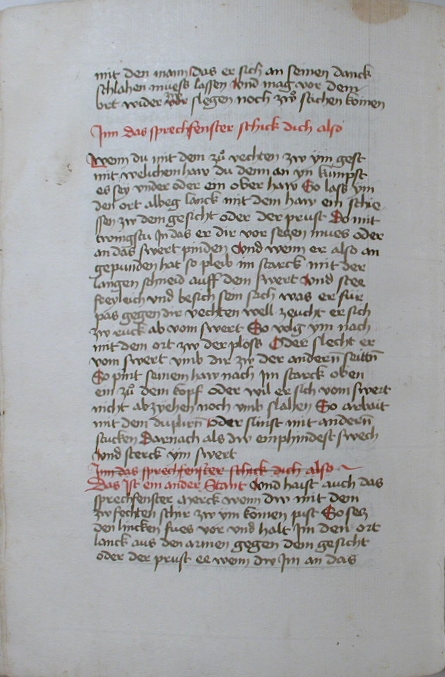 mit den mann das er sich an seinen danck
schlahen muess lassen Und mag vor dem
ort wider slegen noch zw stichen komen
Inn das sprechfenster schick dich also
Wenn du mit dem zu vechten zw ym gest
mit welichem haw du denn an yn kumpst
es sey vnder oder ein ober haw So lass ym
den ort albeg lanck mit dem haw ein schie
ssen zw dem gesicht oder der prust Do mit
twingstu In das er dir vor seczen mues oder
an das swert pinden Vnd wenn er also an
gepunden hat so pleib im starck mit der
langen schneid auff dem swert Vnd stee
freyleich vnd besich sein sach was er für
pas gegen dir vechten well zeucht er sich
zw ruck ab vom swert So volg ym nach
mit dem ort zw der plöss Oder slecht er
vom swert vmb dir zw der andern seitten
So pint seinem haw nach Im starck oben
ein zu dem kopf oder wil er sich vom swert
nicht abzyehen noch vmb slahen So arbait
mit dem duplirn oder sünst mit andern
stucken Darnach als dw emphindest swech
Vnd sterck ym swert
Inn das sprechfenster schick dich also
Das ist ein ander Stant Vnd haist auch das
sprechfenster Merck wenn dw mit dem
zw fechten schir zw ym komen pist So secz
den lincken fues vor vnd halt Im den ort
lanck aus den armen gegen dem gesicht
oder der prust ee wenn dw Im an das